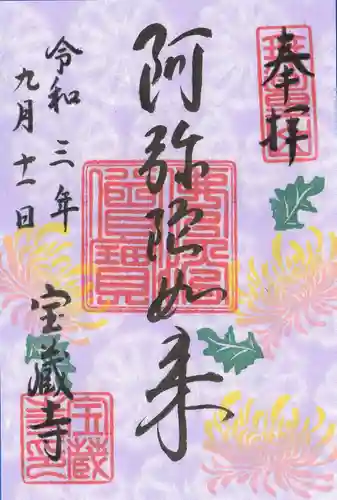 奉拝
阿弥陀如来
令和三年
九月十一日
宝蔵寺